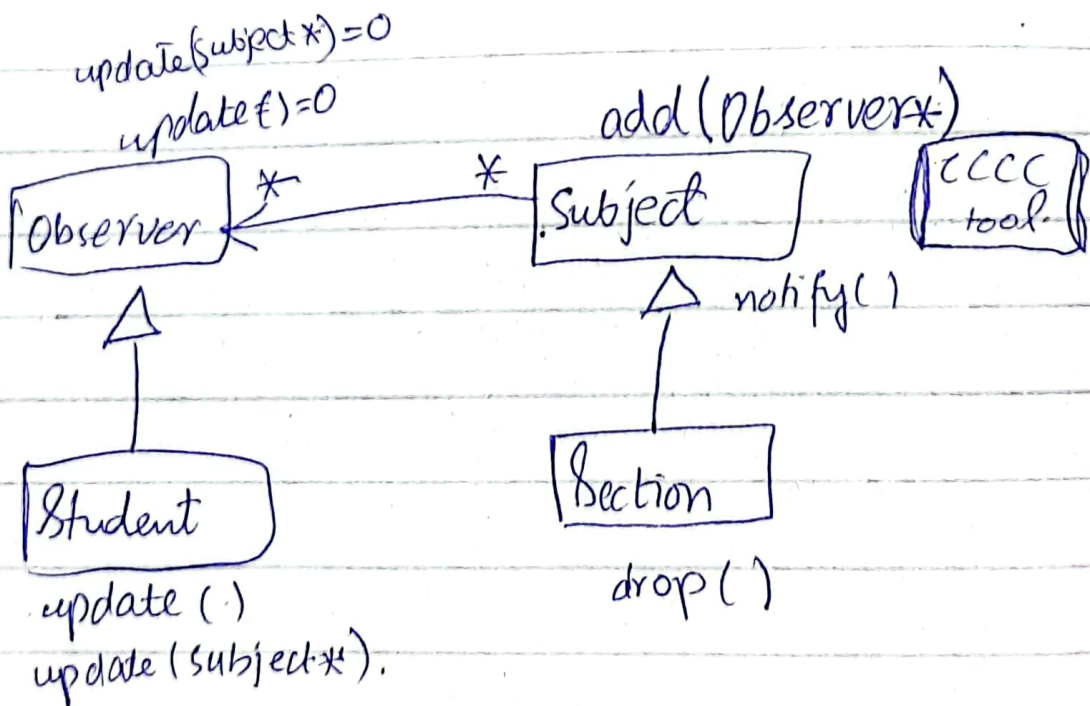 update(subject*)=0
update()=0
add(Observer*)
Observer
*
*
Subject
CCCC
tool.
notify()
Student
Section
update()
drop()
update(subject*).